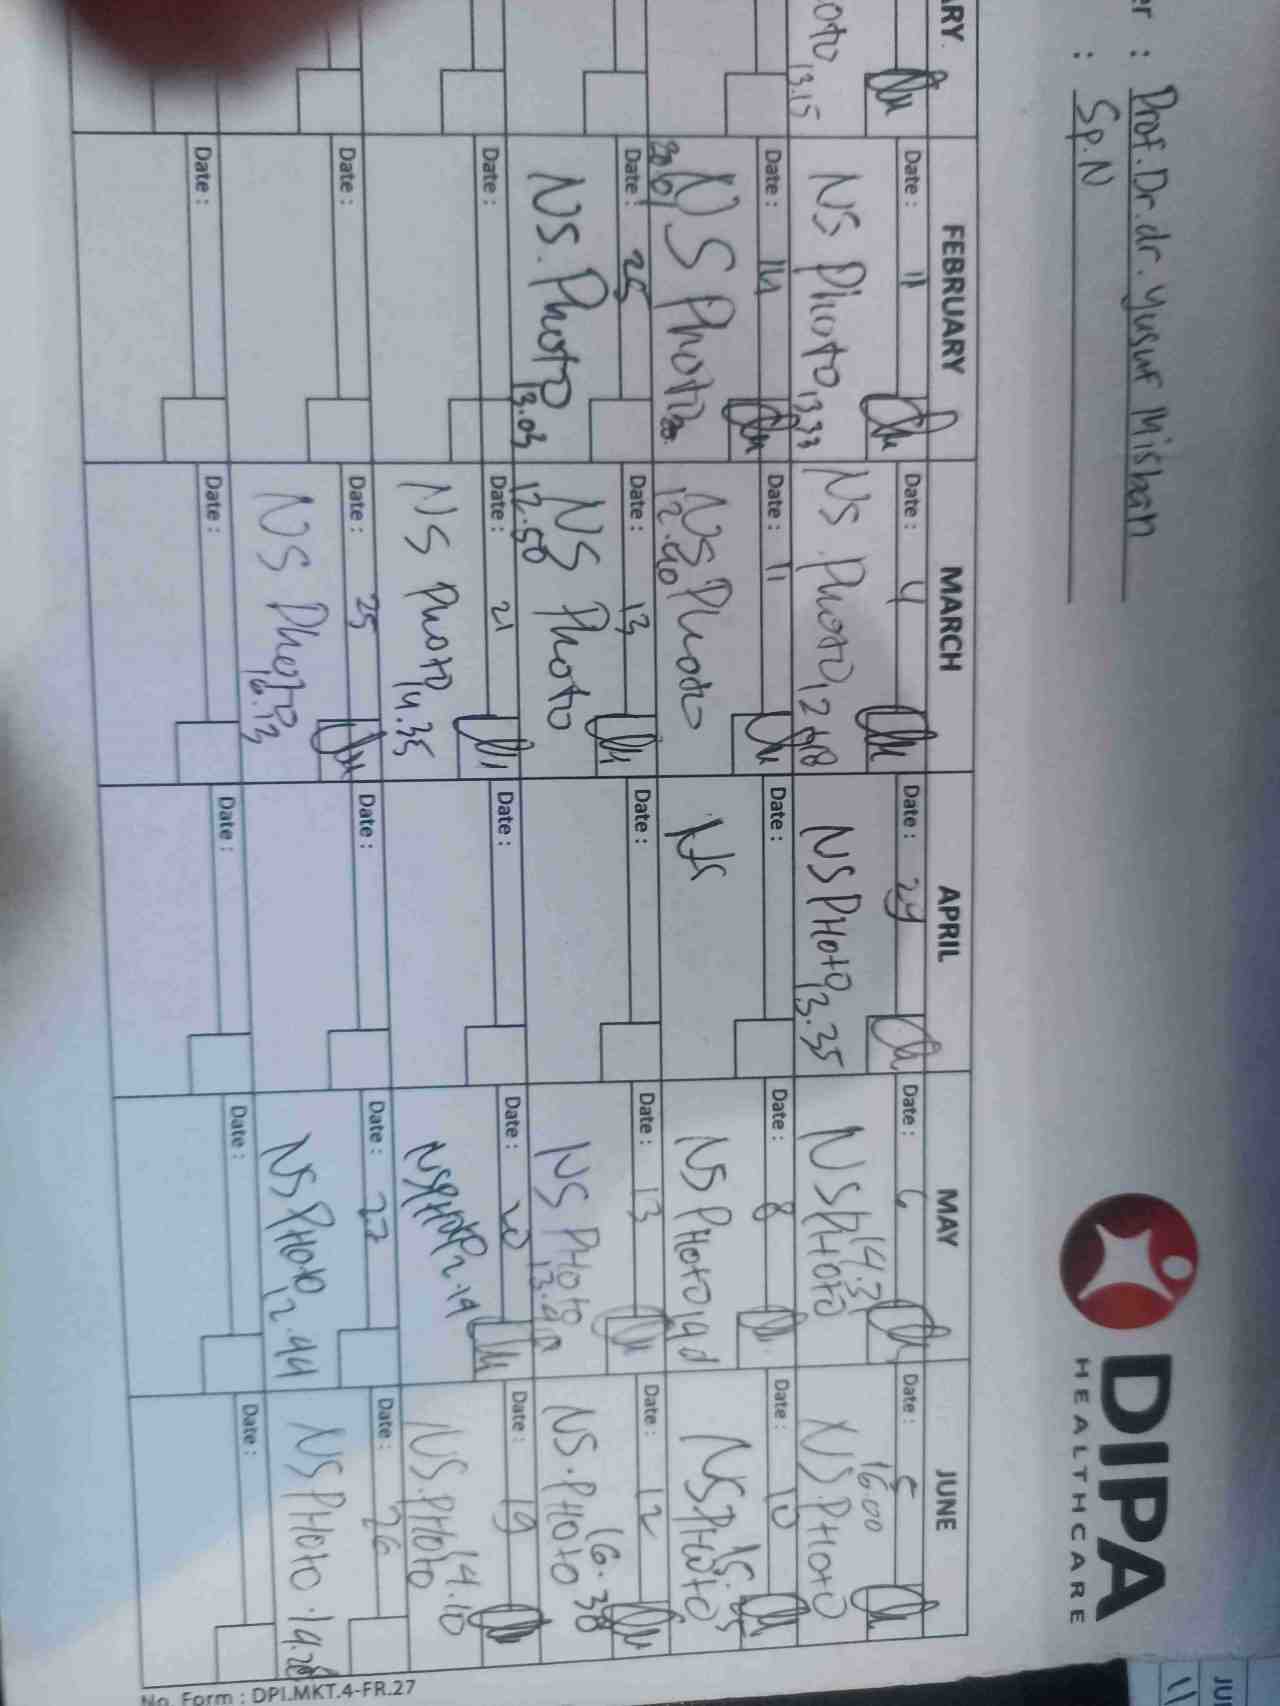 er : Prof. Dr. dr. Yusuf Misbah
: Sp.N
DIPA
HEALTHCARE
ARY
FEBRUARY
MARCH
APRIL
MAY
JUNE
oto 13.15
Date : 11
NS Photo 13.33
Date : 4
NS Photo 12
Date : 29
NS PHOTO 13.35
Date : 6
NS PHOTO 14.31
Date : 5
NS.PHOTO 16.00
Date : 14
NS Photo
Date : 11
NS Photo
12.40
Date :
NS
Date : 8
NS PHOTO
Date : 10
NS PHOTO
Date : 25
NS. Photo 13.03
Date : 13
NS Photo
12.50
Date :
Date : 13
NS PHOTO
Date : 12
NS.PHOTO 16.38
Date :
Date : 21
NS Photo 14.35
Date :
Date : 20
NS PHOTO
Date : 19
NS.PHOTO 14.10
Date :
Date : 25
NS Photo 16.13
Date :
Date : 27
NS PHOTO 12.44
Date : 26
NS PHOTO
Date :
Date :
Date :
Date :
Date :
No. Form : DPI.MKT.4-FR.27
JU